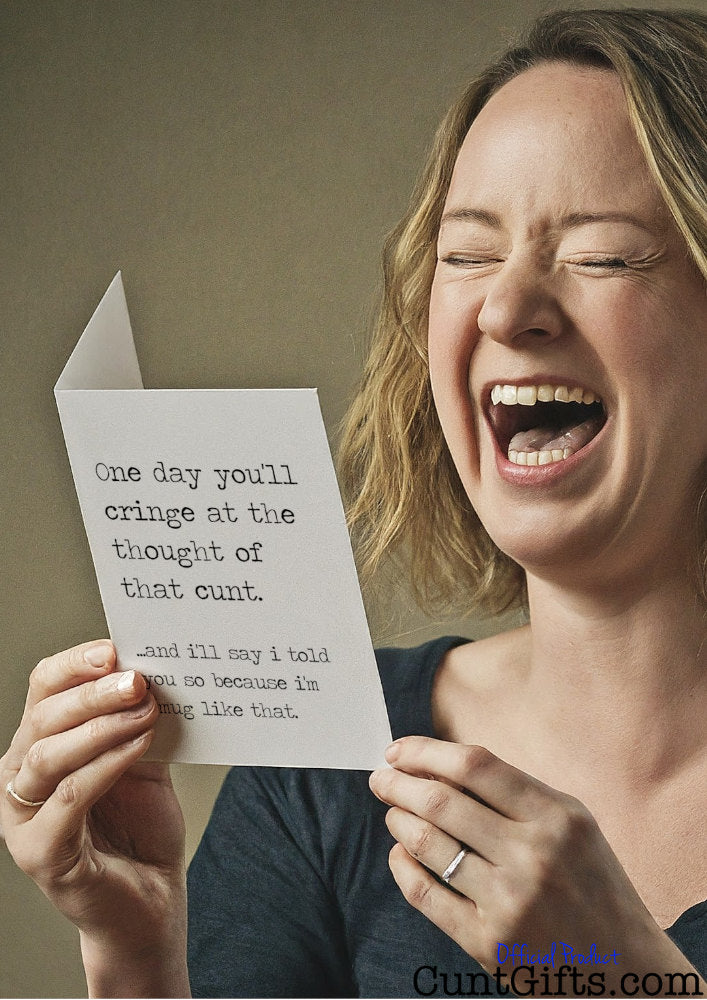 One day you'll
cringe at the
thought of
that cunt.
...and i'll say i told
you so because i'm
smug like that.
Official Product
CuntGifts.com